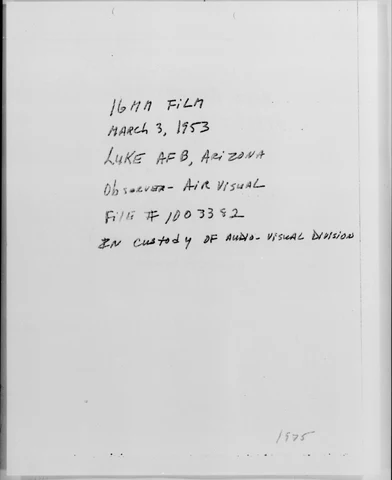 16MM FILM
MARCH 3, 1953
LUKE AFB, ARIZONA
Observer - AIR VISUAL
File # 1003382
IN custody OF AUDIO-VISUAL DIVISION
1975